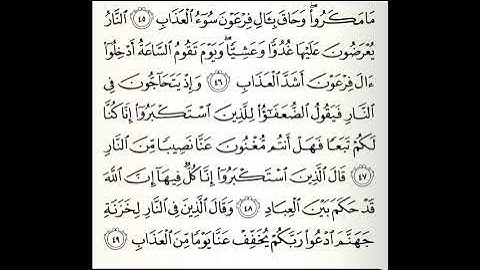 مَا مَكَرُوا۟ ۖ وَحَاقَ بِـَٔالِ فِرْعَوْنَ سُوٓءُ ٱلْعَذَابِ ٤٥ ٱلنَّارُ
يُعْرَضُونَ عَلَيْهَا غُدُوًّا وَعَشِيًّا ۖ وَيَوْمَ تَقُومُ ٱلسَّاعَةُ أَدْخِلُوٓا۟
ءَالَ فِرْعَوْنَ أَشَدَّ ٱلْعَذَابِ ٤٦ وَإِذْ يَتَحَآجُّونَ فِى
ٱلنَّارِ فَيَقُولُ ٱلضُّعَفَـٰٓؤُا۟ لِلَّذِينَ ٱسْتَكْبَرُوٓا۟ إِنَّا كُنَّا
لَكُمْ تَبَعًا فَهَلْ أَنتُم مُّغْنُونَ عَنَّا نَصِيبًا مِّنَ ٱلنَّارِ
٤٧ قَالَ ٱلَّذِينَ ٱسْتَكْبَرُوٓا۟ إِنَّا كُلٌّ فِيهَآ إِنَّ ٱللَّهَ
قَدْ حَكَمَ بَيْنَ ٱلْعِبَادِ ٤٨ وَقَالَ ٱلَّذِينَ فِى ٱلنَّارِ لِخَزَنَةِ
جَهَنَّمَ ٱدْعُوا۟ رَبَّكُمْ يُخَفِّفْ عَنَّا يَوْمًا مِّنَ ٱلْعَذَابِ ٤٩